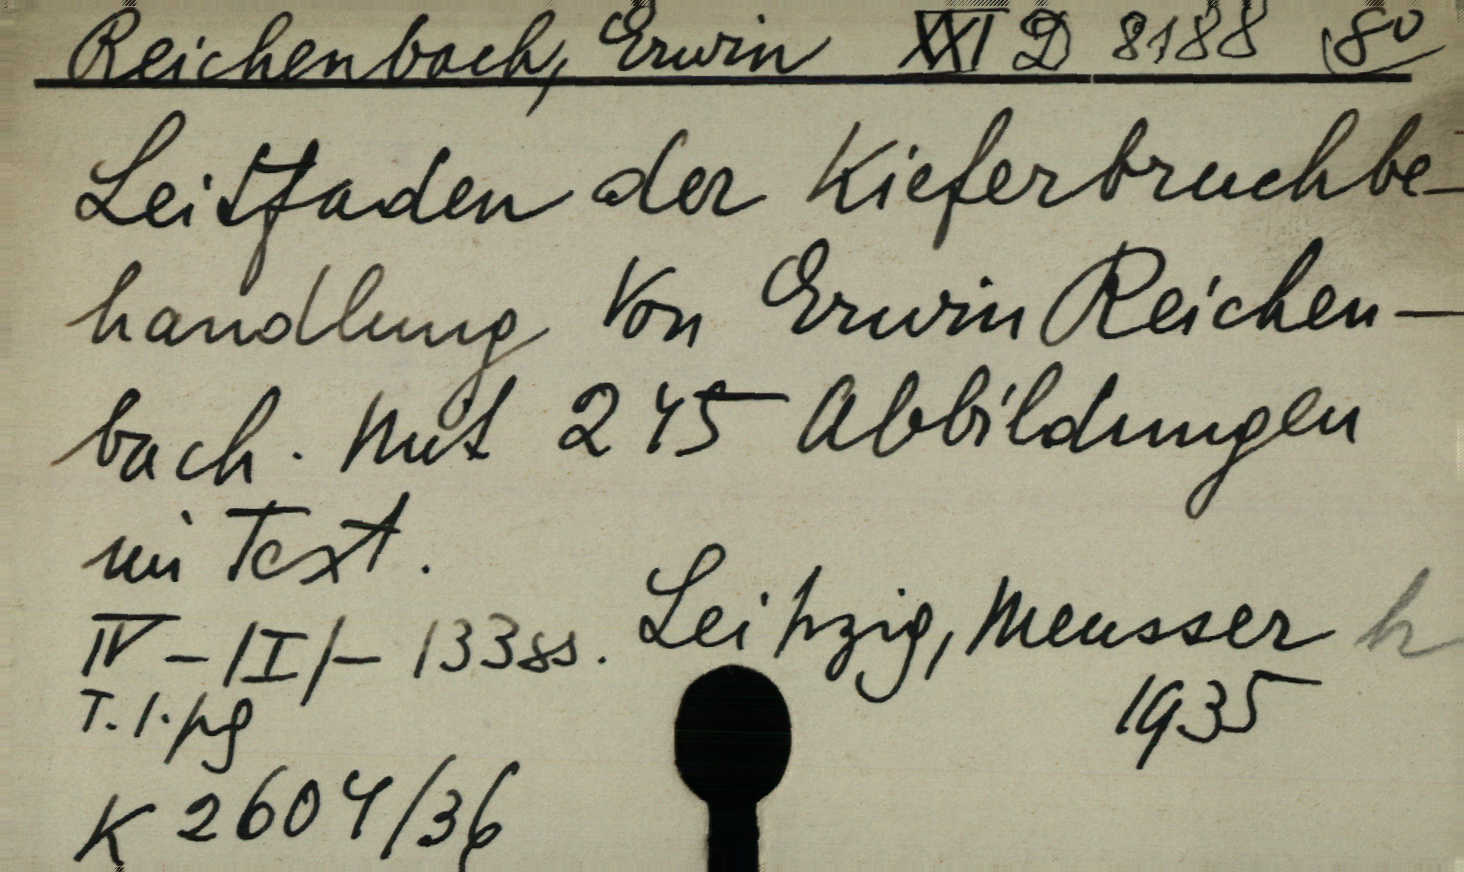 Reichenbach, Erwin XXI D 8188 8°
Leitfaden der Kieferbruchbe-
handlung Von Erwin Reichen-
bach. Mit 245 Abbildungen
im Text.
IV - /I/ - 133 ss. Leipzig, Meusser
T. 1. pg 1935
K 2604/36